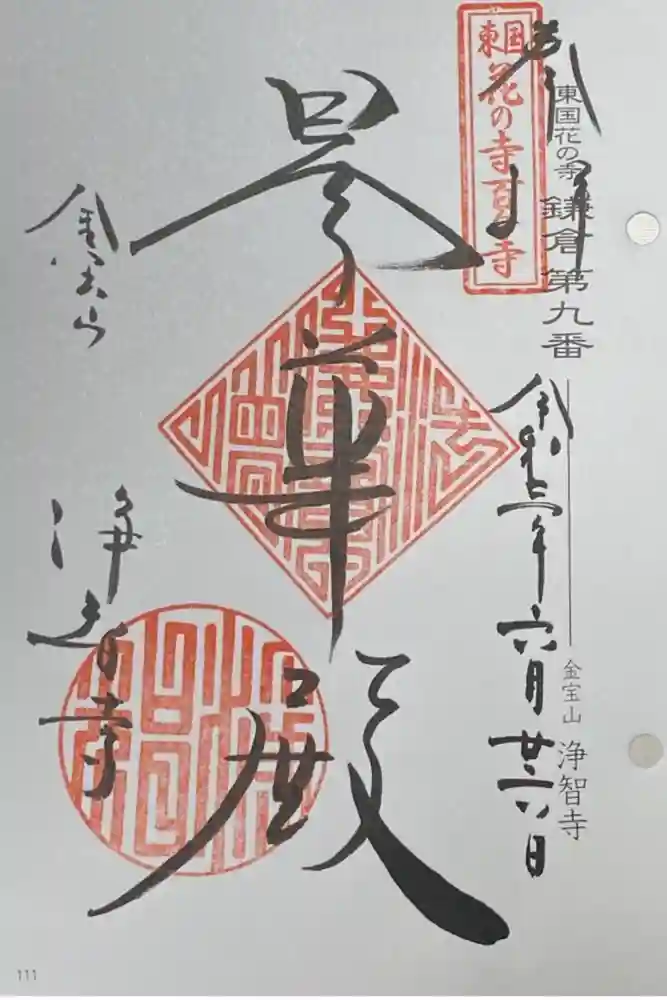 奉拝
東国
花の寺百ケ寺
東国花の寺
鎌倉第九番
金宝山
浄智寺
令和三年六月廿六日
曇華殿
金宝山
浄智寺
111